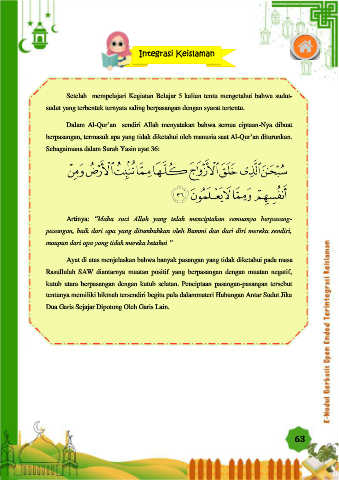 Integrasi Keislaman
Setelah mempelajari Kegiatan Belajar 5 kalian tentu mengetahui bahwa sudut-
sudut yang terbentuk ternyata saling berpasangan dengan syarat tertentu.
Dalam Al-Qur'an sendiri Allah menyatakan bahwa semua ciptaan-Nya dibuat
berpasangan, termasuk apa yang tidak diketahui oleh manusia saat Al-Qur'an diturunkan.
Sebagaimana dalam Surah Yasin ayat 36:
سُبْحَٰنَ ٱلَّذِى خَلَقَ ٱلْأَزْوَٰجَ كُلَّهَا مِمَّا تُنۢبِتُ ٱلْأَرْضُ وَمِنْ
أَنفُسِهِمْ وَمِمَّا لَا يَعْلَمُونَ ٣٦
Artinya: "Maha suci Allah yang telah menciptakan semuanya berpasang-
pasangan, baik dari apa yang ditumbuhkan oleh Bummi dan dari diri mereka sendiri,
maupun dari apa yang tidak mereka ketahui "
Ayat di atas menjelaskan bahwa banyak pasangan yang tidak diketahui pada masa
Rasullullah SAW diantarnya muatan positif yang berpasangan dengan muatan negatif,
kutub utara berpasangan dengan kutub selatan. Penciptaan pasangan-pasangan tersebut
tentunya memiliki hikmah tersendiri begitu pula dalammateri Hubungan Antar Sudut Jika
Dua Garis Sejajar Dipotong Oleh Garis Lain.
E-Modul Berbasis Open Ended Terintegrasi Keislaman
63